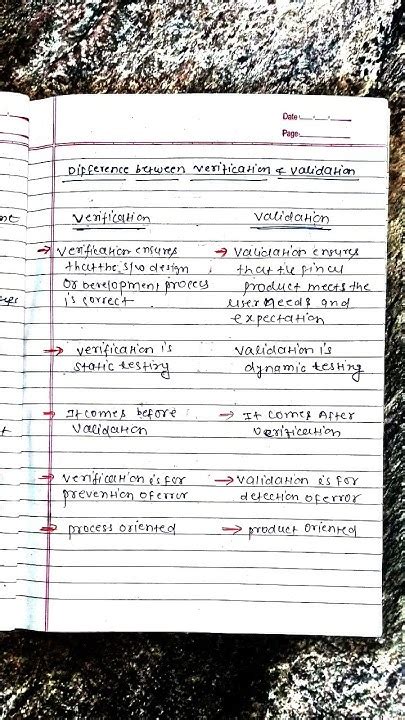 Date:
Page:
Difference between verification & validation
verification
validation
→ verification ensures
that the s/w design
or Development process
is correct
→ validation ensures
that the final
product meets the
user needs and
expectation
→ verification is
static testing
validation is
dynamic testing
→ It comes before
validation
→ It comes After
verification
→ verification is for
prevention of error
→ validation is for
detection of error
→ process oriented
→ product oriented